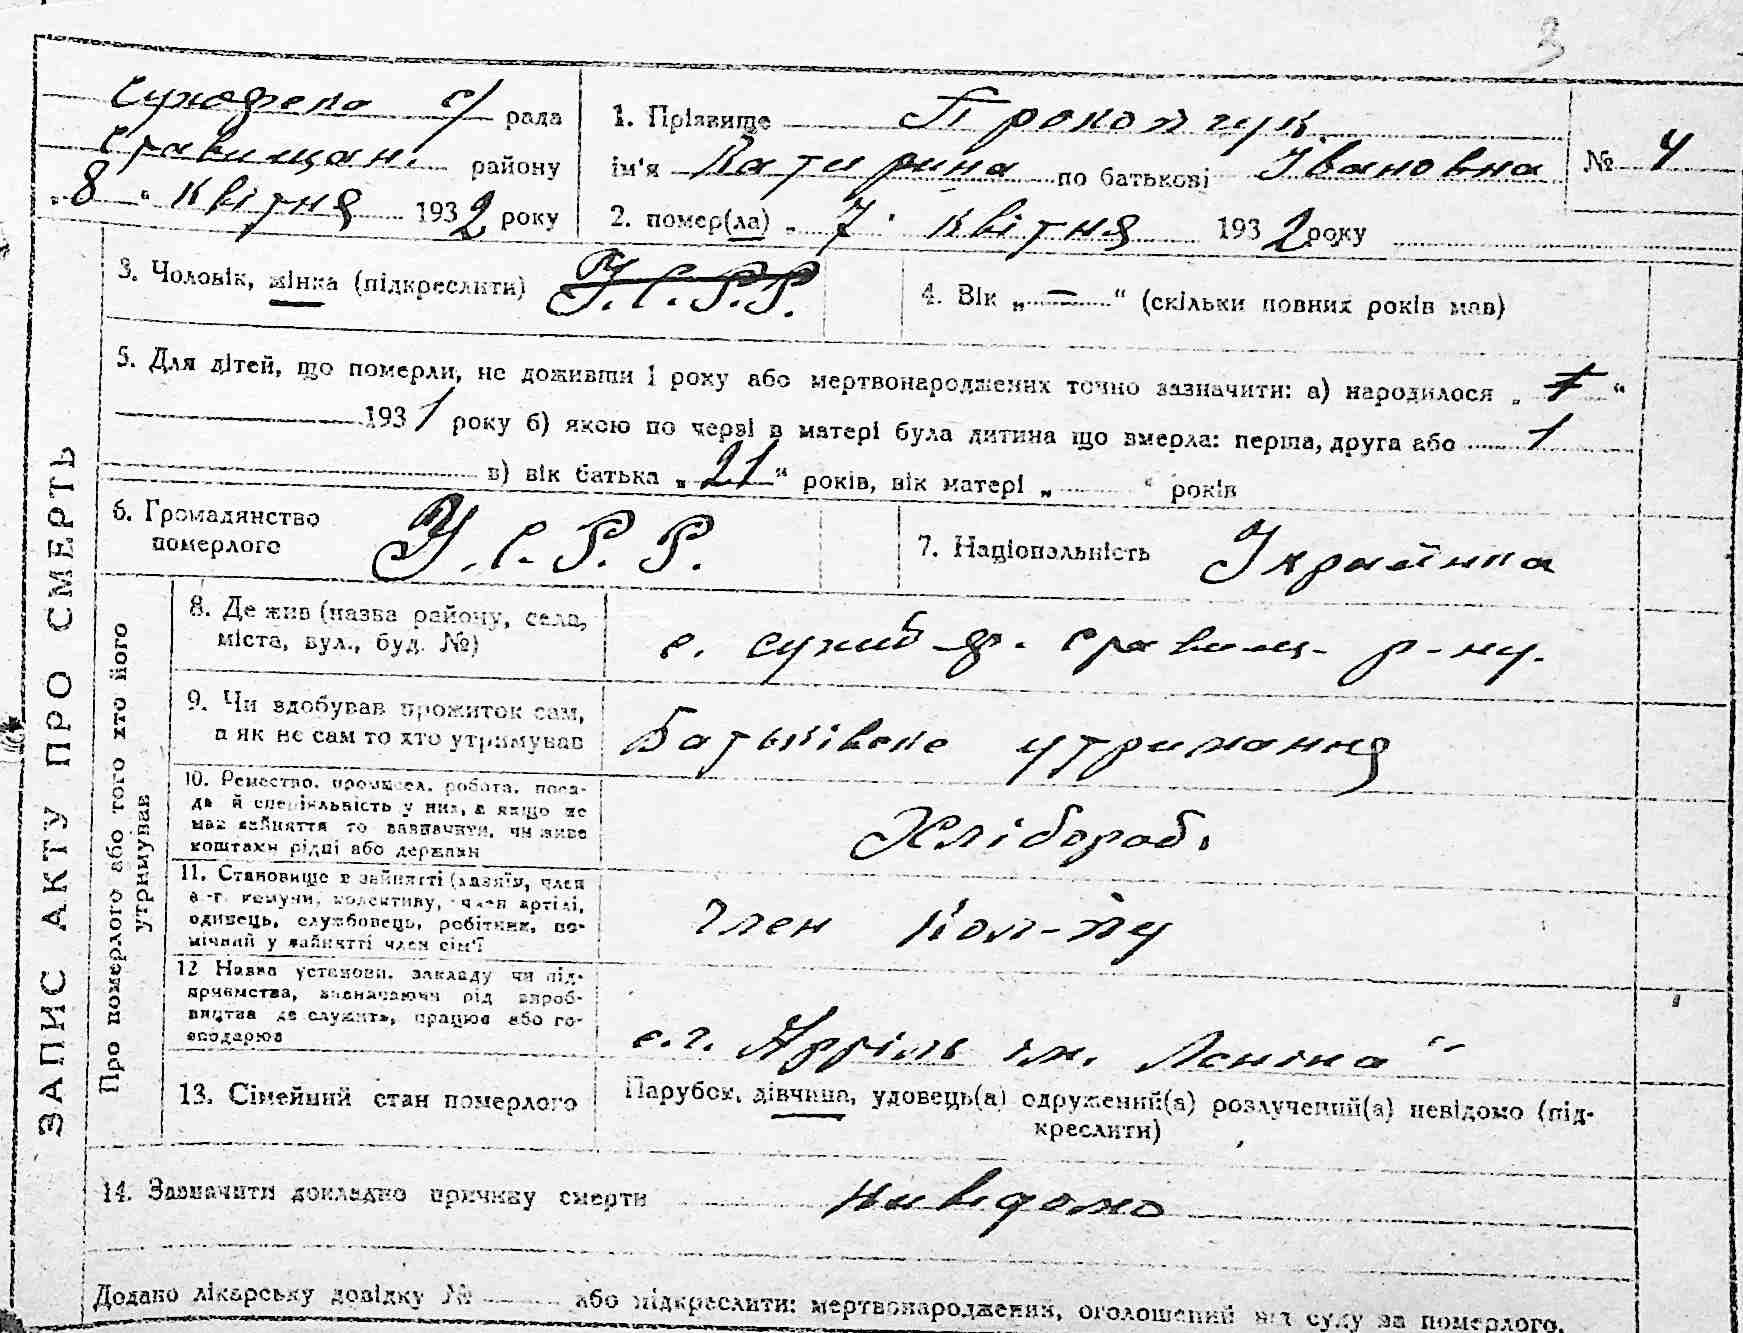 3
с/ рада
Ставищан. району
„8“ квітня 1932 року
1. Прізвище Прокопчук
ім'я Катирина по батькові Івановна
2. помер(ла) „7“ квітня 1932 року
№ 4
3. Чоловік, жінка (підкреслити) У.С.Р.Р.
4. Вік „ — “ (скільки повних років мав)
5. Для дітей, що померли, не доживши 1 року або мертвонароджених точно зазначити: а) народилося „ “
1931 року б) якою по черзі в матері була дитина що вмерла: перша, друга або 1
в) вік батька „21“ років, вік матері „ “ років
6. Громадянство
померлого
У.С.Р.Р.
7. Національність Українка
ЗАПИС АКТУ ПРО СМЕРТЬ
Про померлого або того хто його
утримував
8. Де жив (назва району, села,
міста, вул., буд. №)
с. Ставищ. р-ну.
9. Чи здобував прожиток сам,
а як не сам то хто утримував
Батьківске утримання
10. Ремество, промисел, робота, поса-
да й спеціяльність у них, а якщо не
мав зайняття то зазначити, чи живе
коштами рідні або держави
Хлібороб.
11. Становище в зайнятті (хазяїн, член
с.-г. комуни, колективу, член артілі,
одинець, службовець, робітник, по-
мічний у зайнятті член сім'ї
Член
12 Назва установи, закладу чи під-
приємства, зазначаючи рід вироб-
ництва де служить, працює або го-
сподарює
с.г. Артіль ім. Леніна“
13. Сімейний стан померлого
Парубок, дівчина, удовець(а) одружений(а) розлучений(а) невідомо (під-
креслити)
14. Зазначити докладно причину смерти невідомо
Додано лікарську довідку № або підкреслити: мертвонароджений, оголошений від суду за померлого.